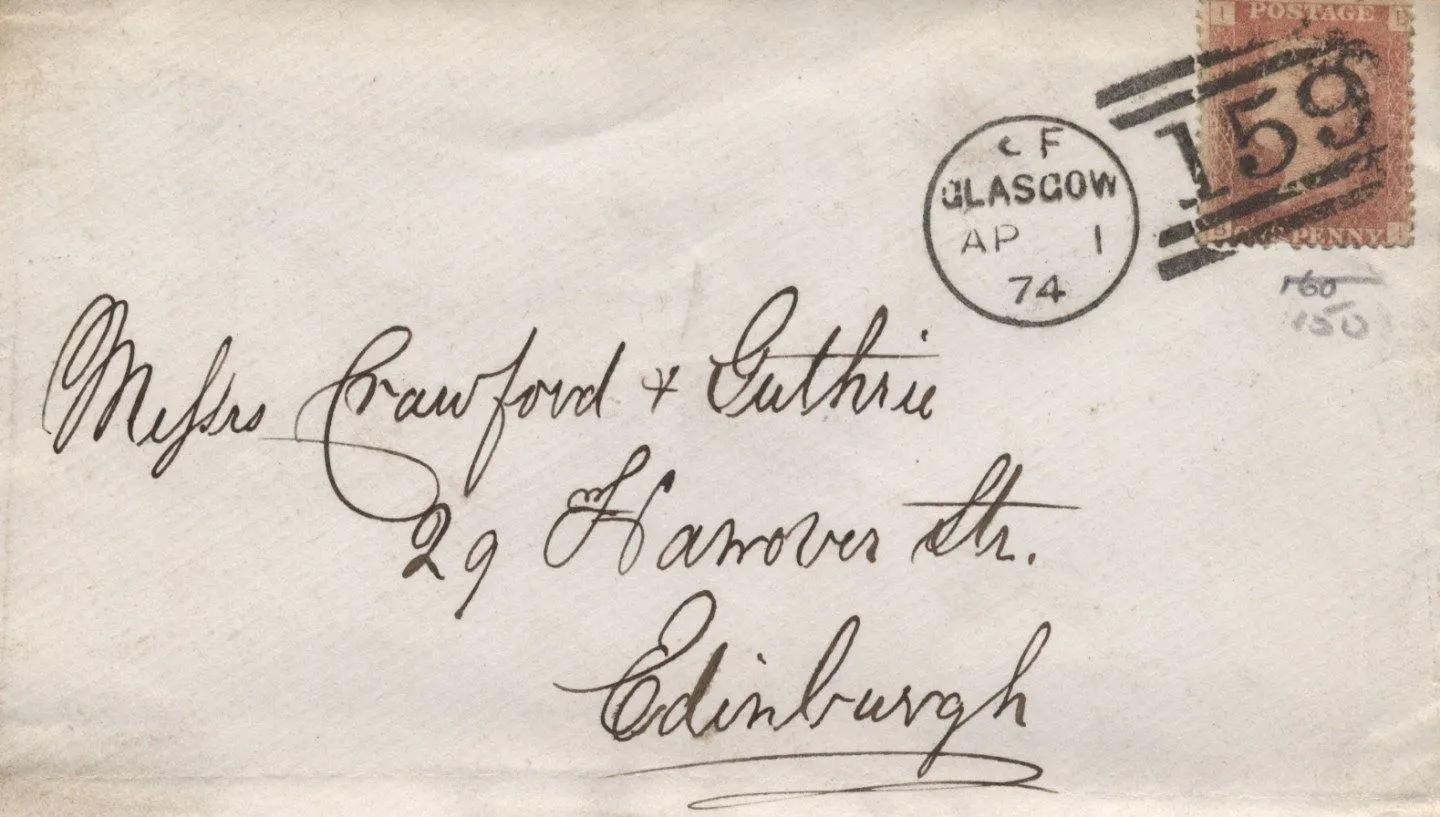 POSTAGE
159
ONE PENNY
F
GLASGOW
AP 1
74
160
150
Messrs Crawford & Guthrie
29 Hanover Str.
Edinburgh